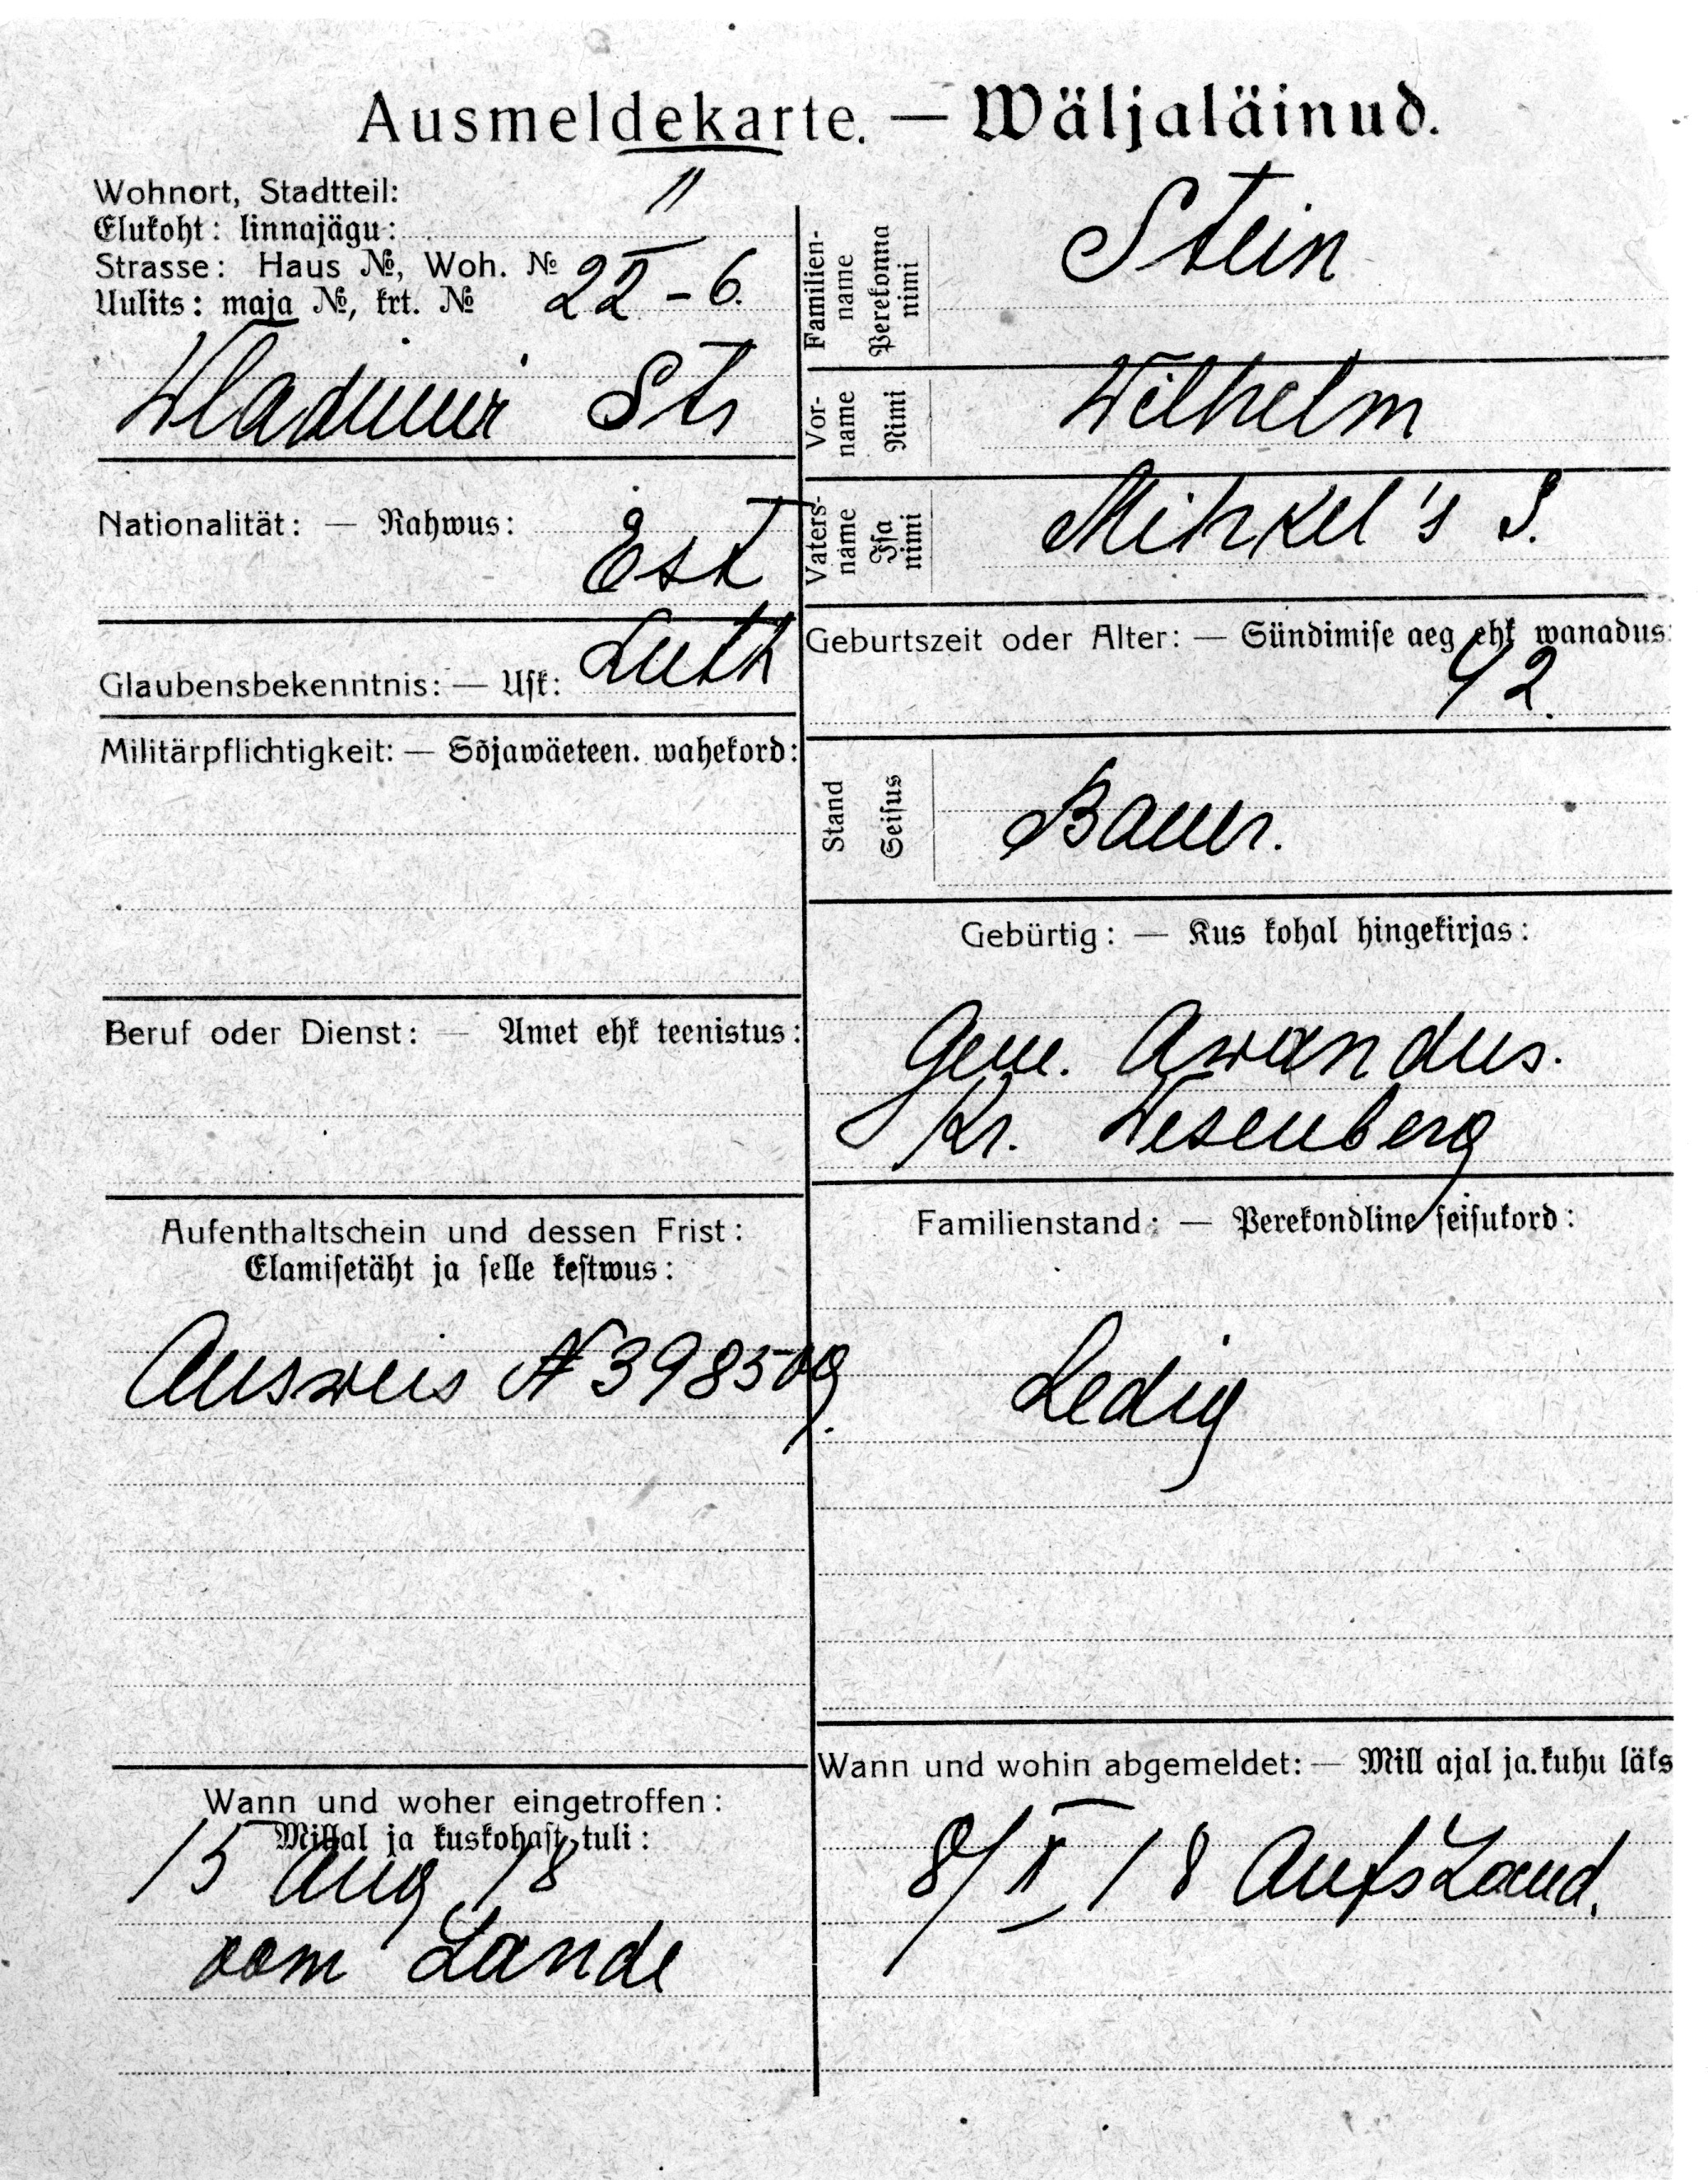 Ausmeldekarte. — Wäljaläinud.
Wohnort, Stadtteil: II
Elukoht: linnajägu:
Strasse: Haus №, Woh. № 22 - 6.
Uulits: maja №, krt. №
Wladimir Str
Nationalität: — Rahwus: Est
Glaubensbekenntnis: — Usk: Luth
Militärpflichtigkeit: — Sõjawäeteen. wahekord:
Beruf oder Dienst: — Amet ehk teenistus:
Aufenthaltschein und dessen Frist:
Elamisetäht ja selle kestwus:
Ausweis № 398509.
Wann und woher eingetroffen:
Millal ja kuskohast tuli:
15 Aug 18
vom Lande
Familien-
name
Perekonna
nimi
Stein
Vor-
name
Nimi
Wilhelm
Vaters-
name
Isa
nimi
Mihkel's S.
Geburtszeit oder Alter: — Sündimise aeg ehk wanadus:
42.
Stand
Seisus
Bauer.
Gebürtig: — Kus kohal hingekirjas:
Gem. Awandus.
Kr. Wesenberg
Familienstand: — Perekondline seisukord:
Ledig
Wann und wohin abgemeldet: — Mill ajal ja kuhu läks
8/X 18 Aufs Land.